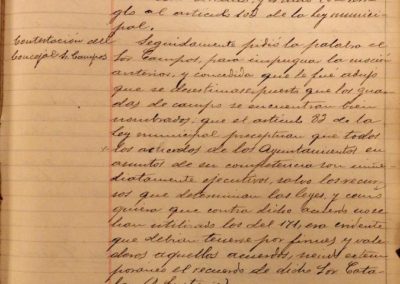 glo al articulo 102 de la ley munici-
pal.
Contestación del
Concejal Sr. Campos
Seguidamente pidió la palabra el
Sor Campos, para impugnar la moción
anterior, y concedida que le fue adujo
que se desestimase puesto que los guar-
das de campo se encuentran bien
nombrados; que el articulo 83 de la
ley municipal preceptua que todos
los acuerdos de los Ayuntamientos en
asuntos de su competencia son inme-
diatamente ejecutivos, salvo los recur-
sos que determinan las leyes, y como
quiera que contra dicho acuerdo no se
han utilizado los del 171, era evidente
que debian tenerse por firmes y vale-
deros aquellos acuerdos, siendo extem-
poraneo el recuerdo de dicho Sor Cata-